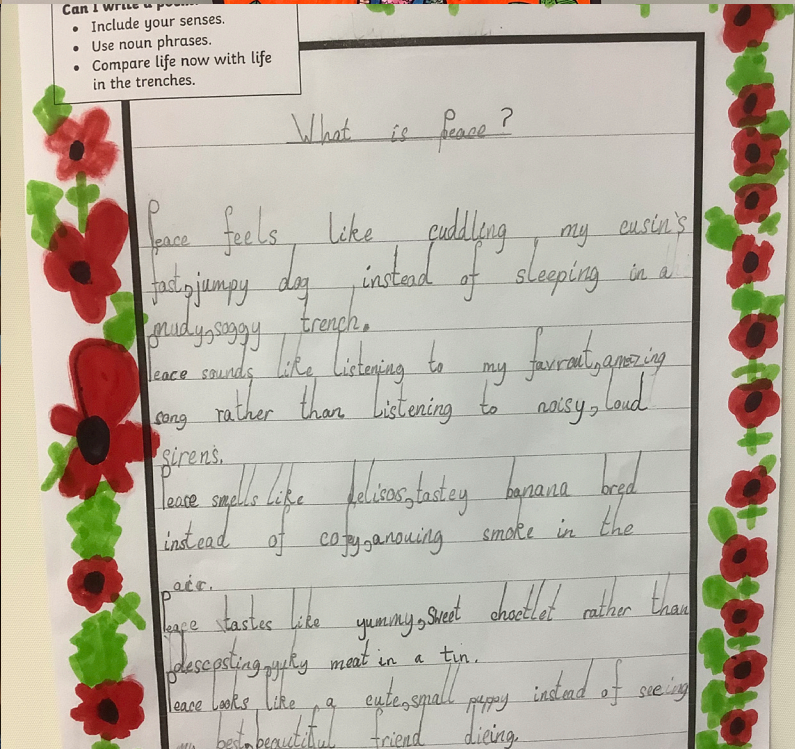 Can I write a poem
• Include your senses.
• Use noun phrases.
• Compare life now with life
in the trenches.
What is Peace?
Peace feels like cuddling my cusin's
fast, jumpy dog instead of sleeping in a
mudy, soggy trench.
Peace sounds like listening to my favrout, amazing
song rather than listening to noisy, loud
sirens.
Peace smells like delisos, tastey banana bred
instead of cofy, anouing smoke in the
air.
Peace tastes like yummy, sweet choctlet rather than
descosting, yyky meat in a tin.
Peace looks like a cute, small puppy instead of seeing
best, beautiful friend dieing.